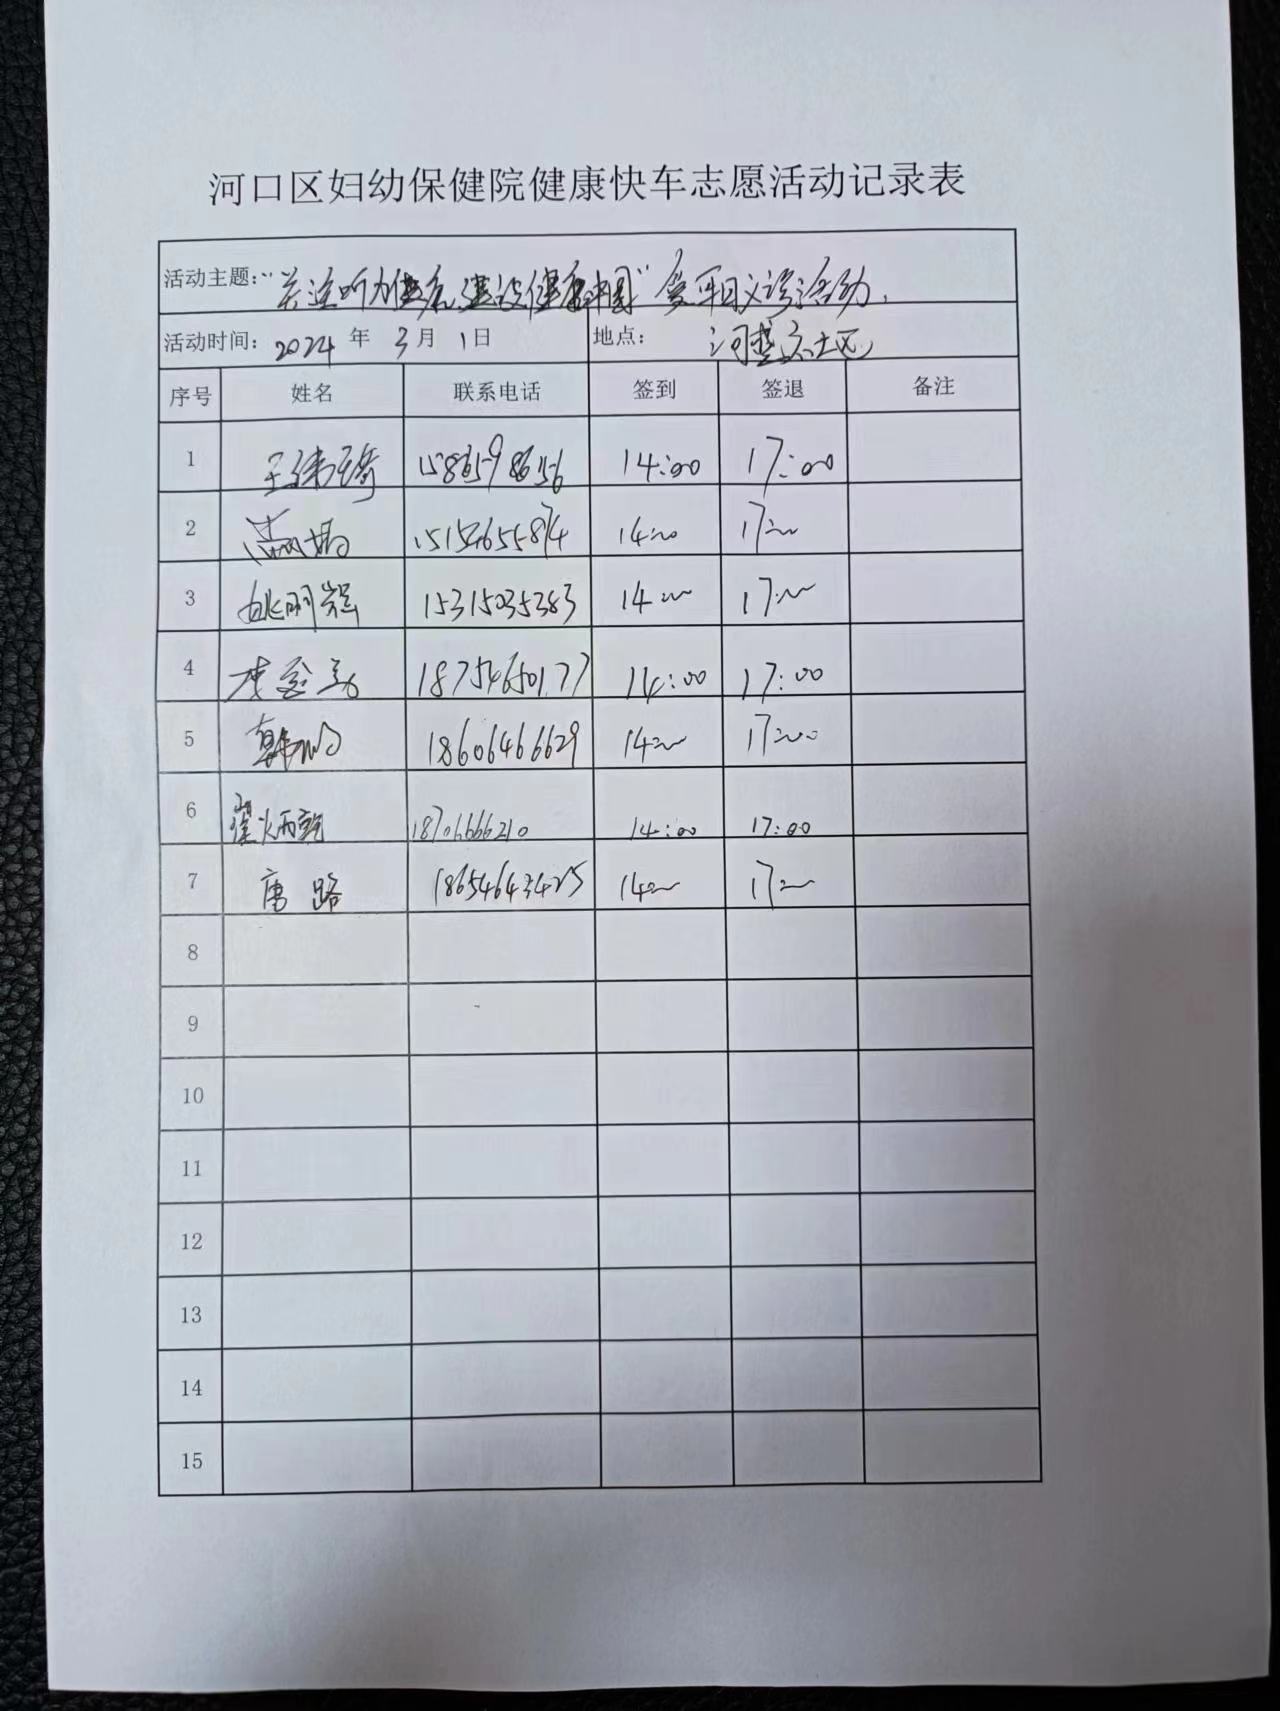 河口区妇幼保健院健康快车志愿活动记录表
活动主题：“关注听力健康 建设健康中国”爱耳日义诊活动
活动时间：2024 年 3月 1日 地点：河社区
序号 姓名 联系电话 签到 签退 备注
1 王 14:00 17:00
2 15154655874 14:00 17:00
3 姚明 15315035383 14:00 17:00
4 李 18754650177 14:00 17:00
5 韩 18606466629 14:00 17:00
6 翟炳乾 18706666210 14:00 17:00
7 唐路 18654643425 14:00 17:00
8
9
10
11
12
13
14
15